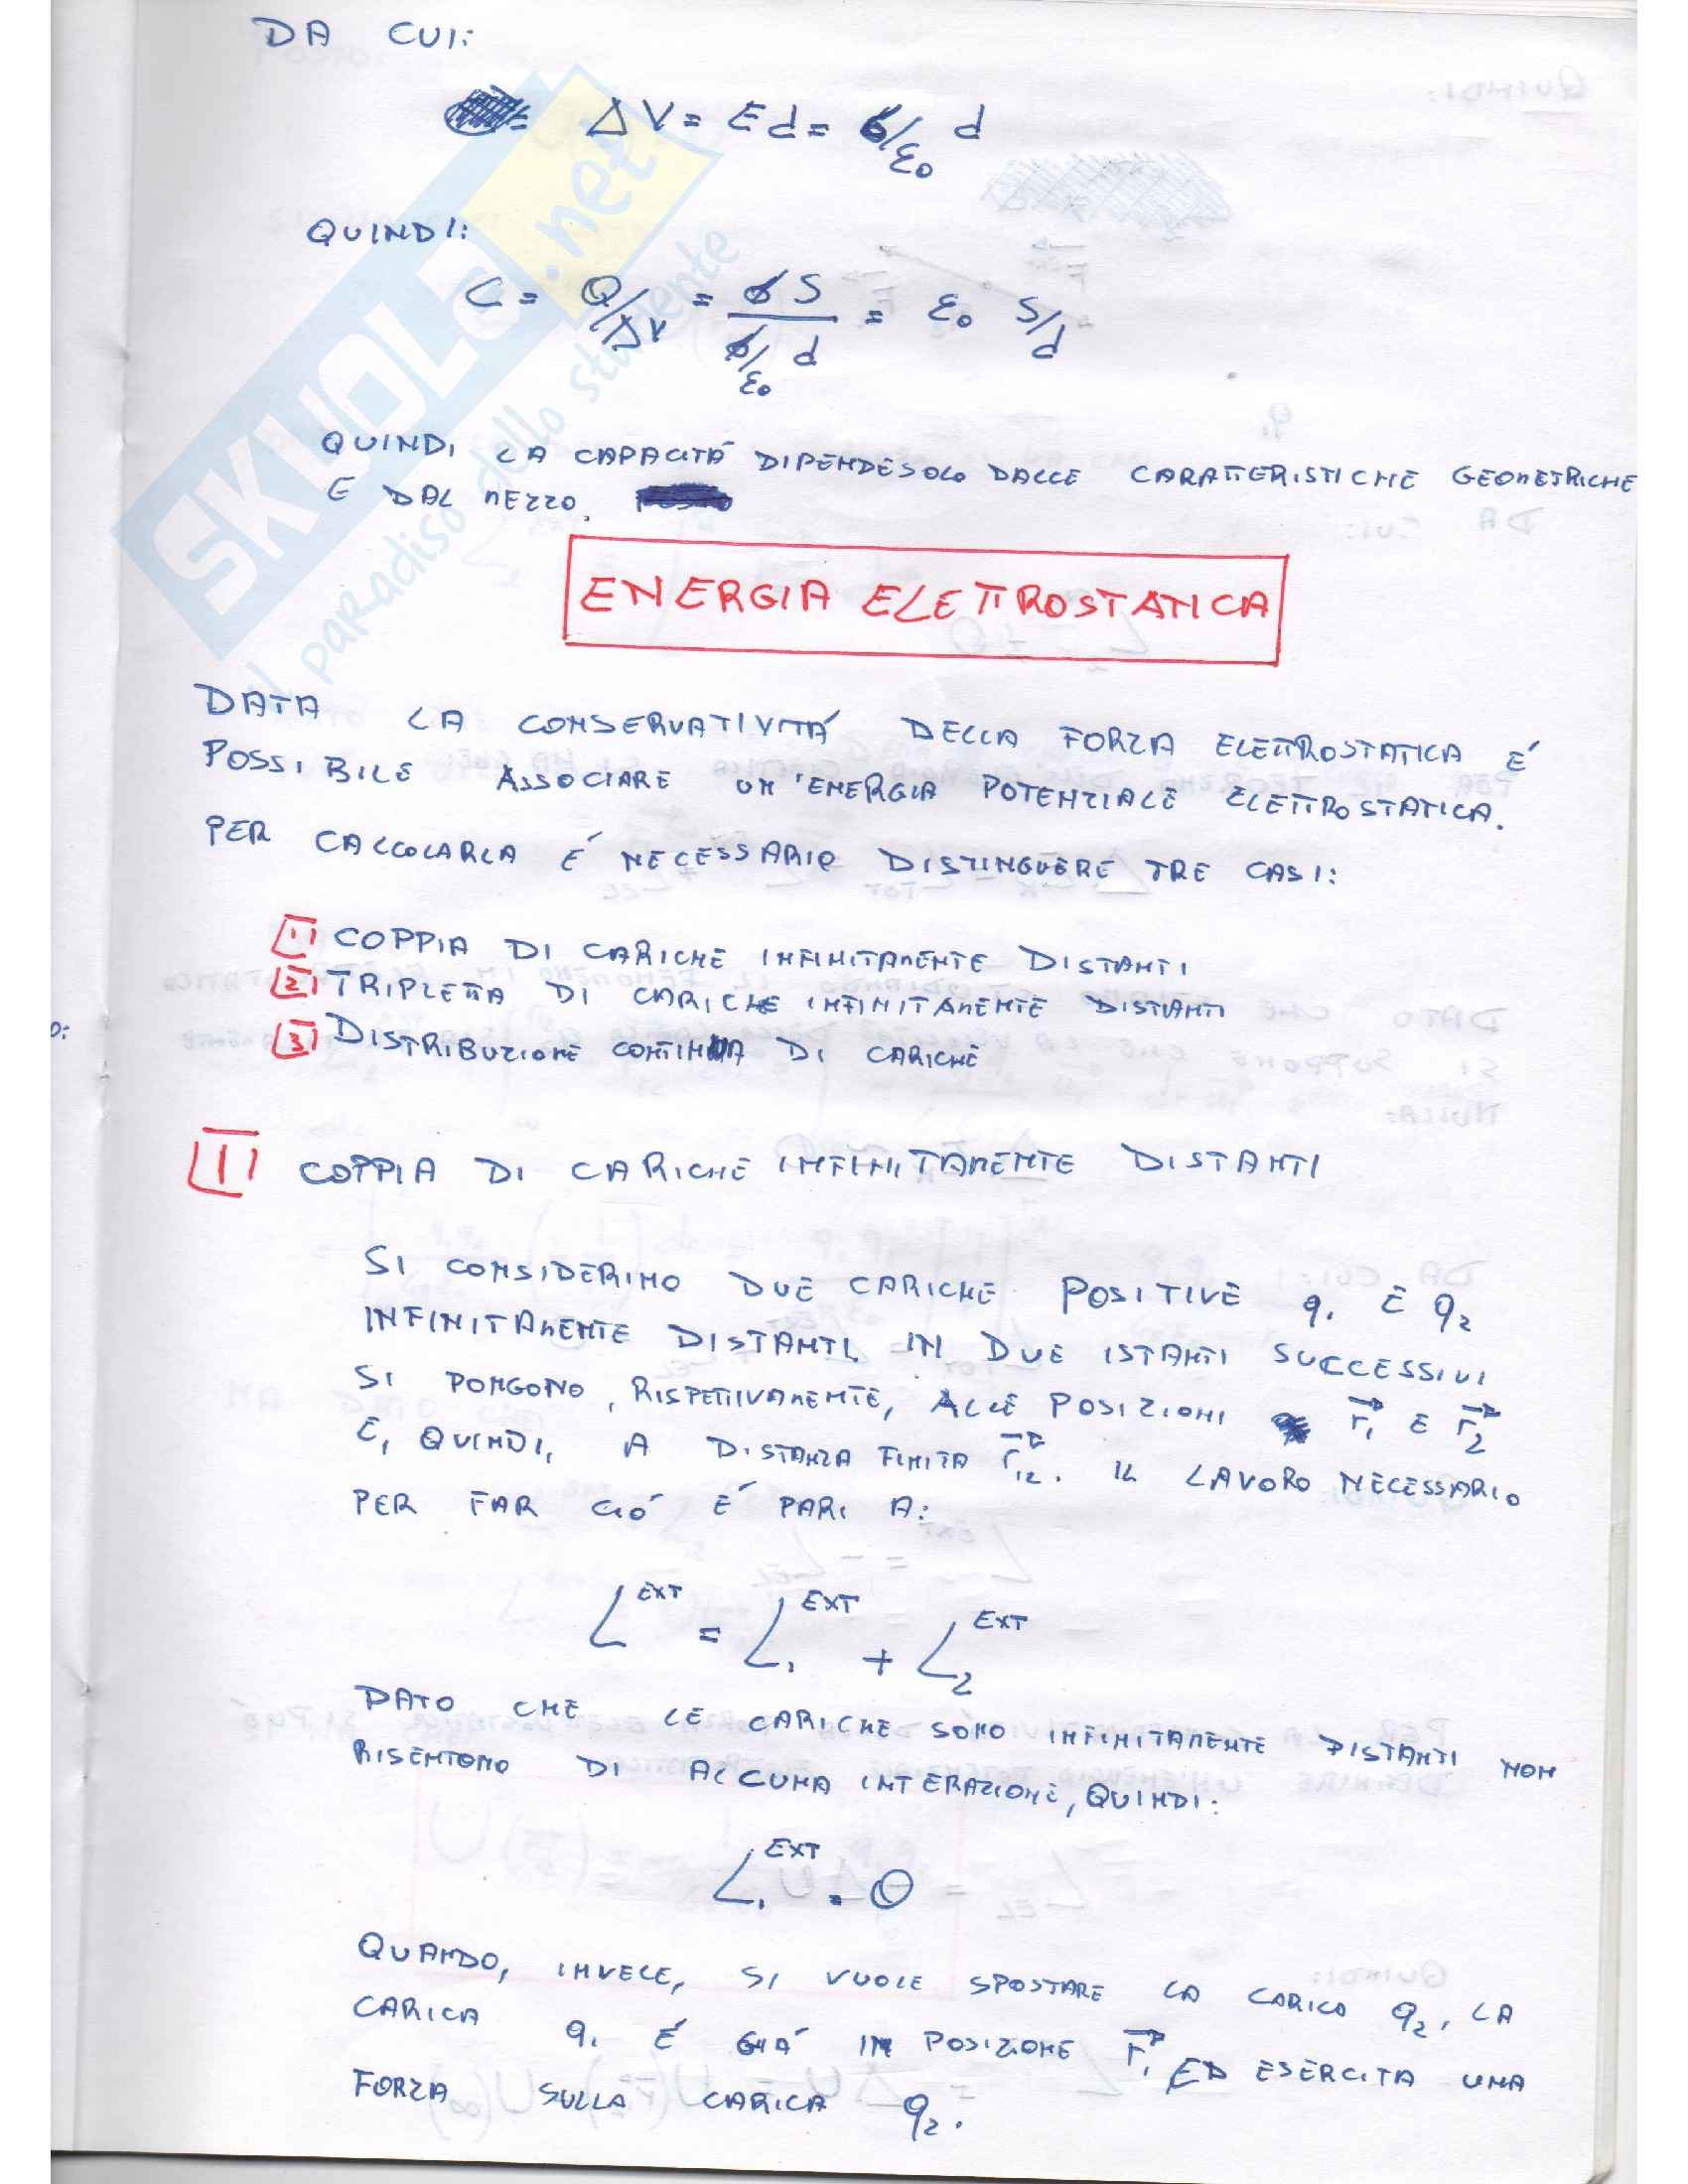 DA CUI:
ΔV = Ed = σ/ε₀ d
QUINDI:
C = Q/ΔV = σS / (σ/ε₀ d) = ε₀ S/d
QUINDI LA CAPACITÁ DIPENDE SOLO DALLE CARATTERISTICHE GEOMETRICHE
E DAL MEZZO.
ENERGIA ELETTROSTATICA
DATA LA CONSERVATIVITÁ DELLA FORZA ELETTROSTATICA É
POSSIBILE ASSOCIARE UN'ENERGIA POTENZIALE ELETTROSTATICA.
PER CALCOLARLA É NECESSARIO DISTINGUERE TRE CASI:
1 COPPIA DI CARICHE INFINITAMENTE DISTANTI
2 TRIPLETTA DI CARICHE INFINITAMENTE DISTANTI
3 DISTRIBUZIONE CONTINUA DI CARICHE
1 COPPIA DI CARICHE INFINITAMENTE DISTANTI
SI CONSIDERINO DUE CARICHE POSITIVE q₁ E q₂
INFINITAMENTE DISTANTI. IN DUE ISTANTI SUCCESSIVI
SI PONGONO, RISPETTIVAMENTE, ALLE POSIZIONI r⃗₁ E r⃗₂
E, QUINDI, A DISTANZA FINITA r⃗₁₂. IL LAVORO NECESSARIO
PER FAR CIÓ É PARI A:
L^EXT = L₁^EXT + L₂^EXT
DATO CHE LE CARICHE SONO INFINITAMENTE DISTANTI NON
RISENTONO DI ALCUNA INTERAZIONE, QUINDI:
L₁^EXT = 0
QUANDO, INVECE, SI VUOLE SPOSTARE LA CARICA q₂, LA
CARICA q₁ É GIÁ IN POSIZIONE r⃗₁ ED ESERCITA UNA
FORZA SULLA CARICA q₂.
SKUOLA.net
il paradiso dello studente